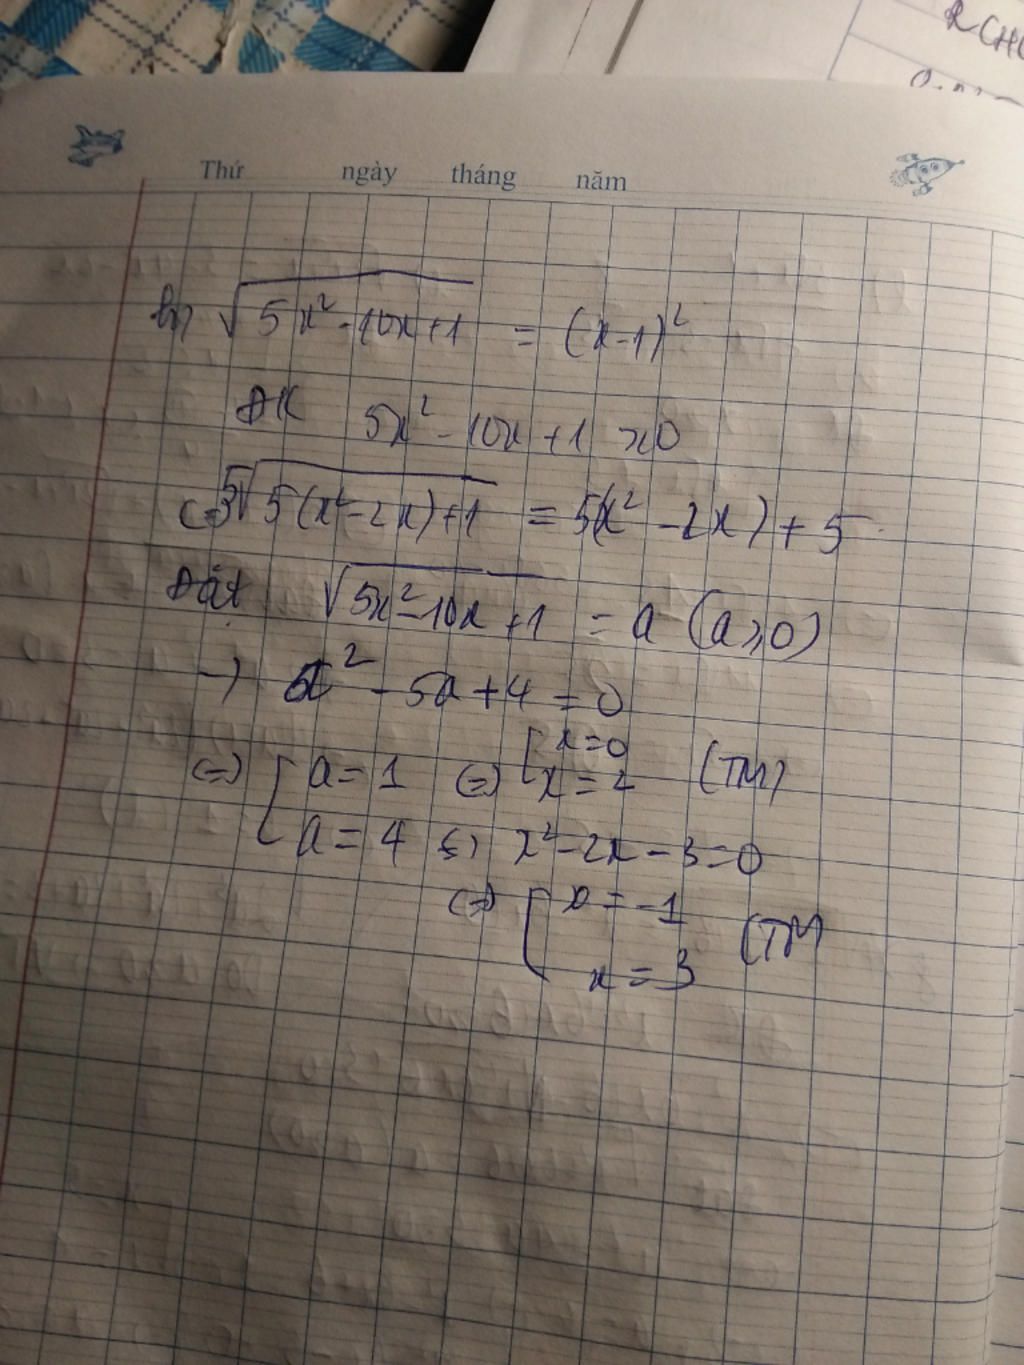 R(HC
Thứ ngày tháng năm
b) √5x² - 10x + 1 = (x - 1)²
ĐK 5x² - 10x + 1 ≥ 0
(=) 5√5(x² - 2x) + 1 = 5(x² - 2x) + 5
Đặt √5x² - 10x + 1 = a (a ≥ 0)
→ a² - 5a + 4 = 0
(=) [ a = 1 (=) [ x = 0
x = 2 (TM)
a = 4 (=) x² - 2x - 3 = 0
(=) [ x = -1
x = 3 (TM)